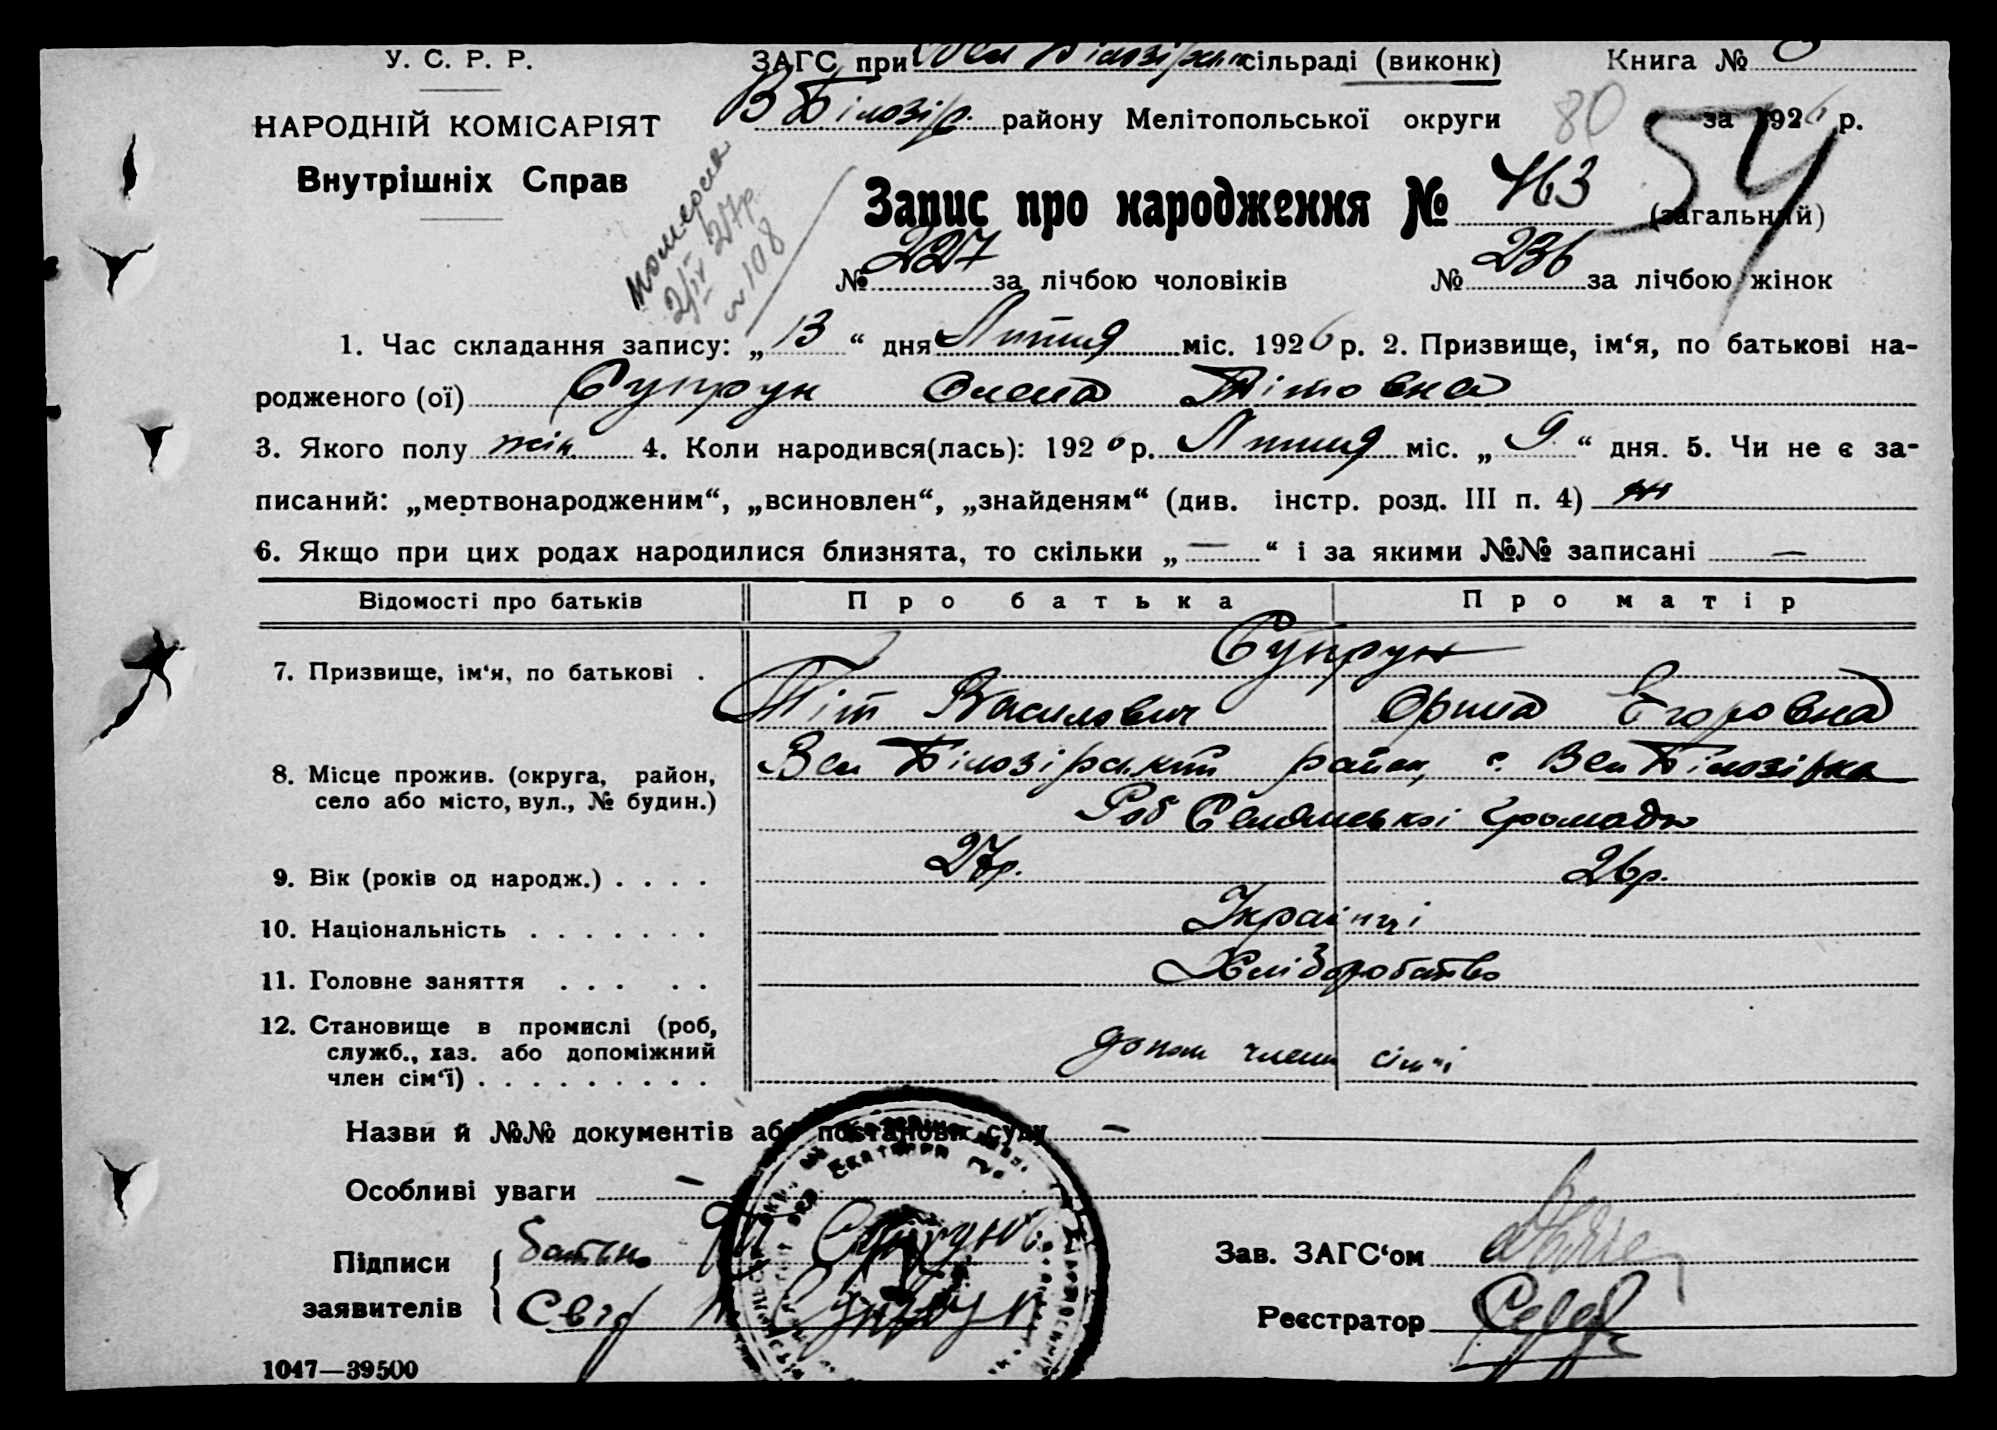 У. С. Р. Р.
ЗАГС при Вел Білозірськ сільраді (виконк)
Книга №
НАРОДНІЙ КОМІСАРІЯТ
Внутрішніх Справ
В Білозір. району Мелітопольської округи
80
за 1926 р.
54
померла
2/IV 27р.
№ 108
Запис про народження № 463 (загальний)
№ 227 за лічбою чоловіків № 236 за лічбою жінок
1. Час складання запису: „ 13 “ дня Липня міс. 1926 р. 2. Призвище, ім‘я, по батькові на-
родженого (ої) Супрун Олена Тітовна
3. Якого полу жін. 4. Коли народився(лась): 1926 р. Липня міс. „ 9 “ дня. 5. Чи не є за-
писаний: „мертвонародженим“, „всиновлен“, „знайденям“ (див. інстр. розд. III п. 4)
6. Якщо при цих родах народилися близнята, то скільки „ — “ і за якими №№ записані —
Відомості про батьків Про батька Про матір
Супрун
7. Призвище, ім‘я, по батькові .
Тіт Василович Орина Егоровна
8. Місце прожив. (округа, район,
село або місто, вул., № будин.)
Вел Білозірський район, с. Вел Білозірка
Роб Селянської Громади
9. Вік (років од народж.) . . . . 27р. 26р.
10. Національність . . . . . . . Українці
11. Головне заняття . . . . . Хліборобство
12. Становище в промислі (роб,
служб., хаз. або допоміжний
член сім‘ї) . . . . . . . . .
допом члени сім'ї
Назви й №№ документів або постанови суду —
Особливі уваги —
Підписи
заявителів
батько Супрун
Свід Супрун
Зав. ЗАГС‘ом
Реєстратор
1047—39500